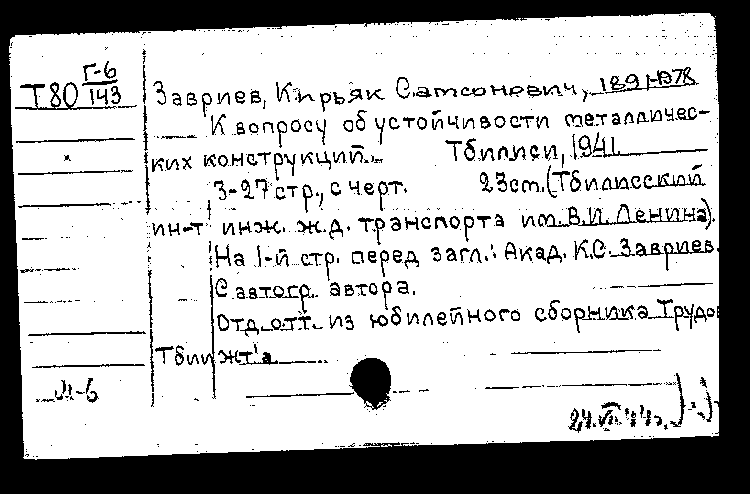 Т80 Г-6/143
Завриев, Кирьяк Самсонович, 1891-1978
К вопросу об устойчивости металличес-
ких конструкций... Тбилиси, 1941.
3-27 стр., с черт. 23 cm. (Тбилисский
ин-т инж. ж.д. транспорта им. В.И. Ленина).
На 1-й стр. перед загл.: Акад. К.С. Завриев.
С автогр. автора.
Отд. отт. из юбилейного сборника Трудов
Тбилижт'а.
М-6
24.VII.44г.